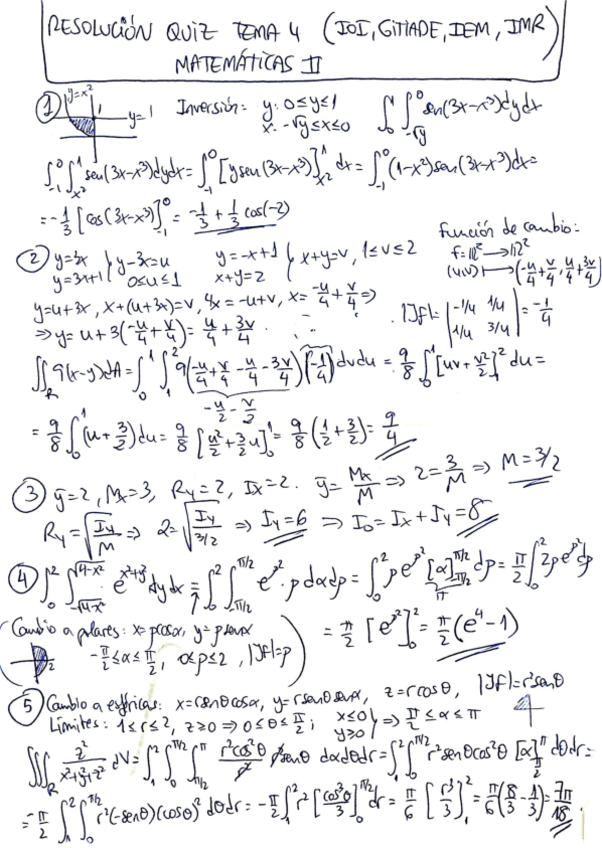 RESOLUCIÓN QUIZ TEMA 4 (IOI, GITIADE, IDEM, IMR)
MATEMÁTICAS II
① y=x² 1 y=1 Inversión: y: 0≤y≤1 x: -√y≤x≤0 ∫₀¹∫_{-√y}^0 sen(3x-x³)dydx
∫_{-1}^0∫_{x²}^1 sen(3x-x³)dydx = ∫_{-1}^0 [y sen(3x-x³)]_{x²}^1 dx = ∫_{-1}^0 (1-x²)sen(3x-x³)dx =
= -1/3 [cos(3x-x³)]_{-1}^0 = -1/3 + 1/3 cos(-2)
② y=3x y=3x+1 } y-3x=u 0≤u≤1 y=-x+1 x+y=2 } x+y=v, 1≤v≤2 Función de cambio:
f=ℝ²→ℝ²
(u,v)↦(-u/4+v/4, u/4+3v/4)
y=u+3x, x+(u+3x)=v, 4x=-u+v, x=-u/4+v/4 ⇒
⇒ y=u+3(-u/4+v/4)=u/4+3v/4 . |Jf|= |-1/4 1/4 1/4 3/4| = -1/4
∬_R 9(x-y)dA = ∫₀¹∫₁² 9(-u/4+v/4-u/4-3v/4)(-1/4)dvdu = 9/8 ∫₀¹ [uv+v²/2]₁² du =
-u/2-v/2
= 9/8 ∫₀¹ (u+3/2)du = 9/8 [u²/2+3/2u]₀¹ = 9/8 (1/2+3/2) = 9/4
③ ȳ=2, Mx=3, Ry=2, Ix=2. ȳ=Mx/M ⇒ 2=3/M ⇒ M=3/2
Ry=√(Iy/M) ⇒ 2=√(Iy/(3/2)) ⇒ Iy=6 ⇒ I₀=Ix+Iy=8
④ ∫₀²∫_{-√(4-x²)}^{√(4-x²)} e^{x²+y²} dydx = ∫₀²∫_{-π/2}^{π/2} e^{ρ²}·ρ dα dρ = ∫₀² ρe^{ρ²} [α]_{-π/2}^{π/2} dρ = π/2 ∫₀² 2ρe^{ρ²} dρ
π
(Cambio a polares: x=ρcosα, y=ρsenα
-π/2≤α≤π/2, 0≤ρ≤2, |Jf|=ρ) 2
= π/2 [e^{ρ²}]₀² = π/2 (e⁴-1)
⑤ Cambio a esféricas: x=rsenθcosα, y=rsenθsenα, z=rcosθ, |Jf|=r²senθ
Límites: 1≤r≤2, z≥0 ⇒ 0≤θ≤π/2; x≤0 y≥0 } ⇒ π/2≤α≤π
∭_R z²/(x²+y²+z²) dV = ∫₁²∫₀^{π/2}∫_{π/2}^π r²cos²θ/r² r²senθ dαdθdr = ∫₁²∫₀^{π/2} r²senθcos²θ [α]_{π/2}^π dθdr =
= -π/2 ∫₁²∫₀^{π/2} r²(-senθ)(cosθ)² dθdr = -π/2 ∫₁² r² [cos³θ/3]₀^{π/2} dr = π/6 [r³/3]₁² = π/6 (8/3-1/3) = 7π/18